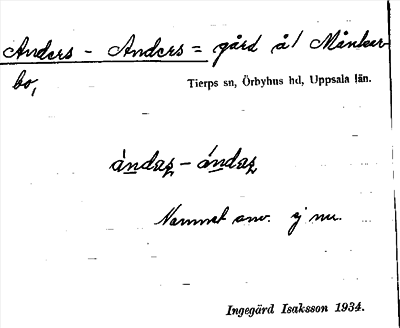 Anders - Anders = gård å/ Månkar-
bo,
Tierps sn, Örbyhus hd, Uppsala län.
ándaʂ - ándaʂ
Namnet anv. ej nu.
Ingegärd Isaksson 1934.